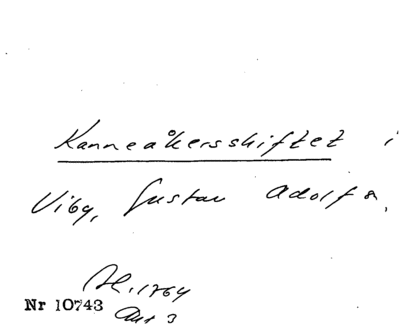 Kanneåkersskiftet i
Viby, Gustav Adolf s.
Nr 10743